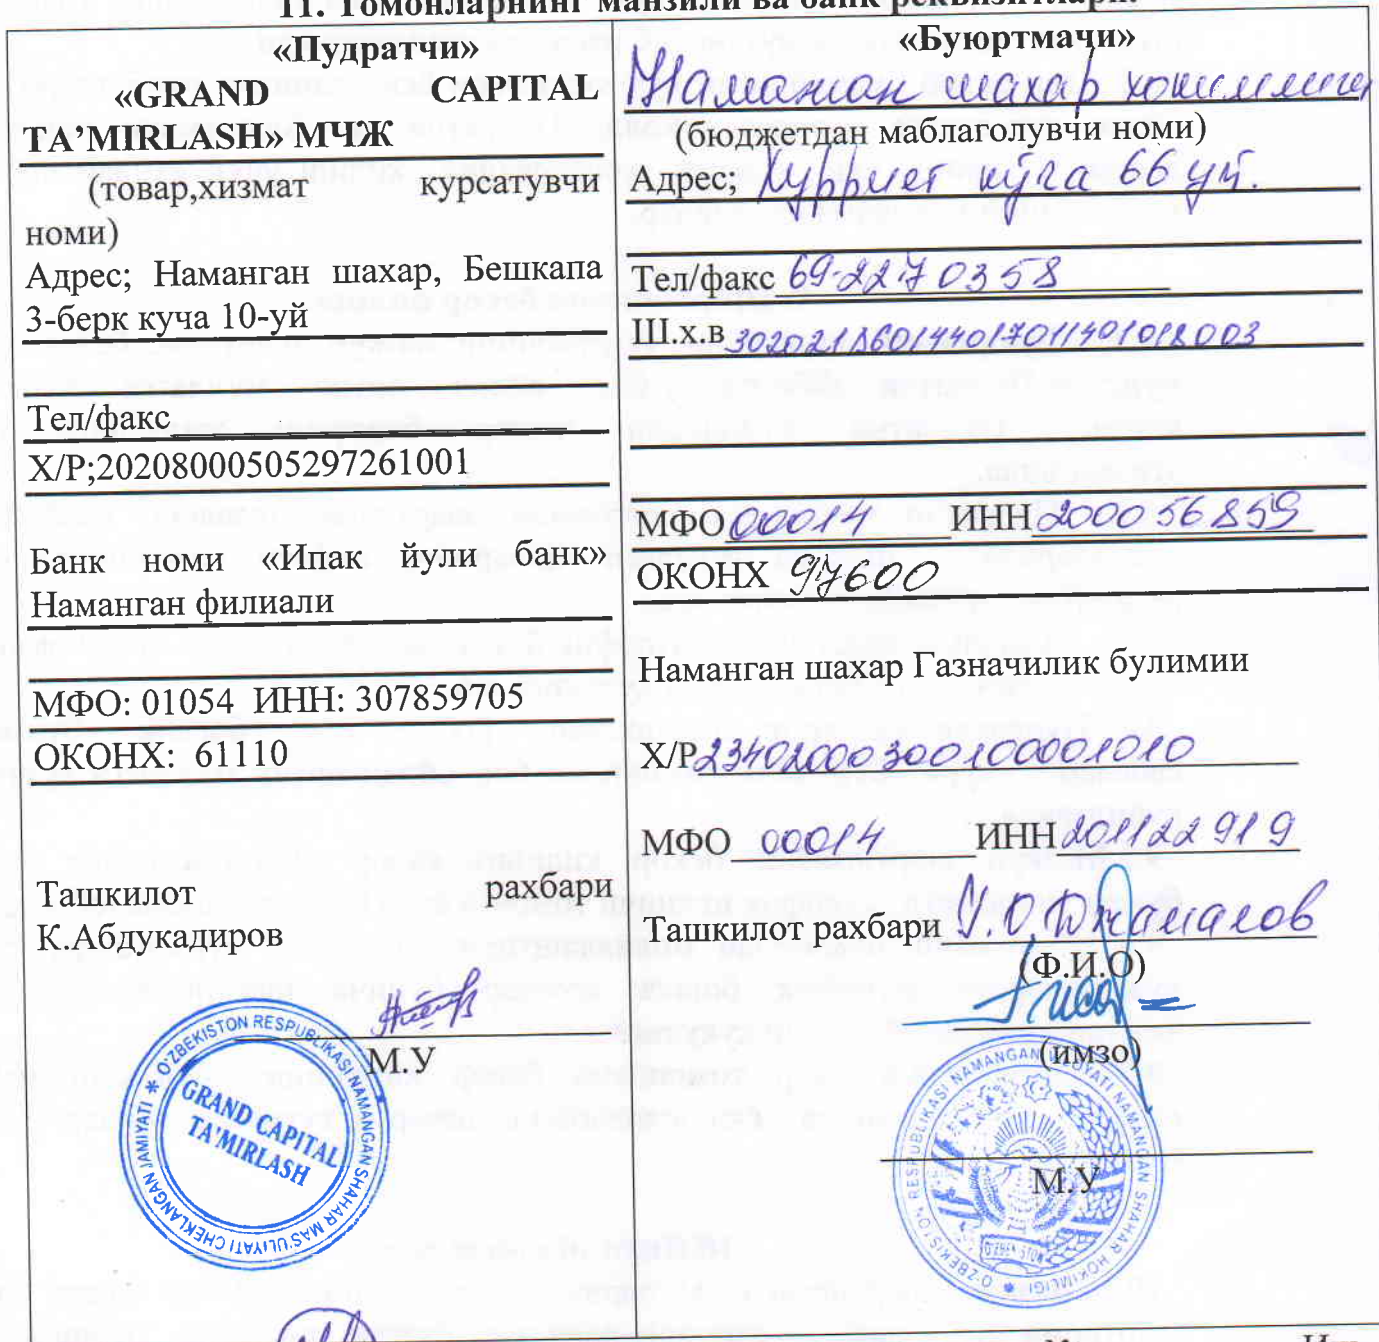 11. Томонларнинг манзили ва банк реквизитлари.
«Пудратчи»
«GRAND CAPITAL
TA’MIRLASH» МЧЖ
(товар,хизмат курсатувчи
номи)
Адрес; Наманган шахар, Бешкапа
3-берк куча 10-уй
Тел/факс
Х/Р;20208000505297261001
Банк номи «Ипак йули банк»
Наманган филиали
МФО: 01054 ИНН: 307859705
ОКОНХ: 61110
Ташкилот рахбари
К.Абдукадиров
М.У
O‘ZBEKISTON RESPUBLIKASI NAMANGAN SHAHAR MAS'ULIYATI CHEKLANGAN JAMIYATI
GRAND CAPITAL
TA'MIRLASH
«Буюртмачи»
Наманган шахар хокимлиги
(бюджетдан маблаголувчи номи)
Адрес; Хуррият кўча 66 уй.
Тел/факс 69-227 03 58
Ш.х.в 302021860144017011401018003
МФО 00014 ИНН 200056859
ОКОНХ 97600
Наманган шахар Газначилик булимии
Х/Р 23402000300100001010
МФО 00014 ИНН 201122919
Ташкилот рахбари Жамалов
(Ф.И.О)
(имзо)
М.У
O‘ZBEKISTON RESPUBLIKASI NAMANGAN VILOYATI NAMANGAN SHAHAR HOKIMLIGI